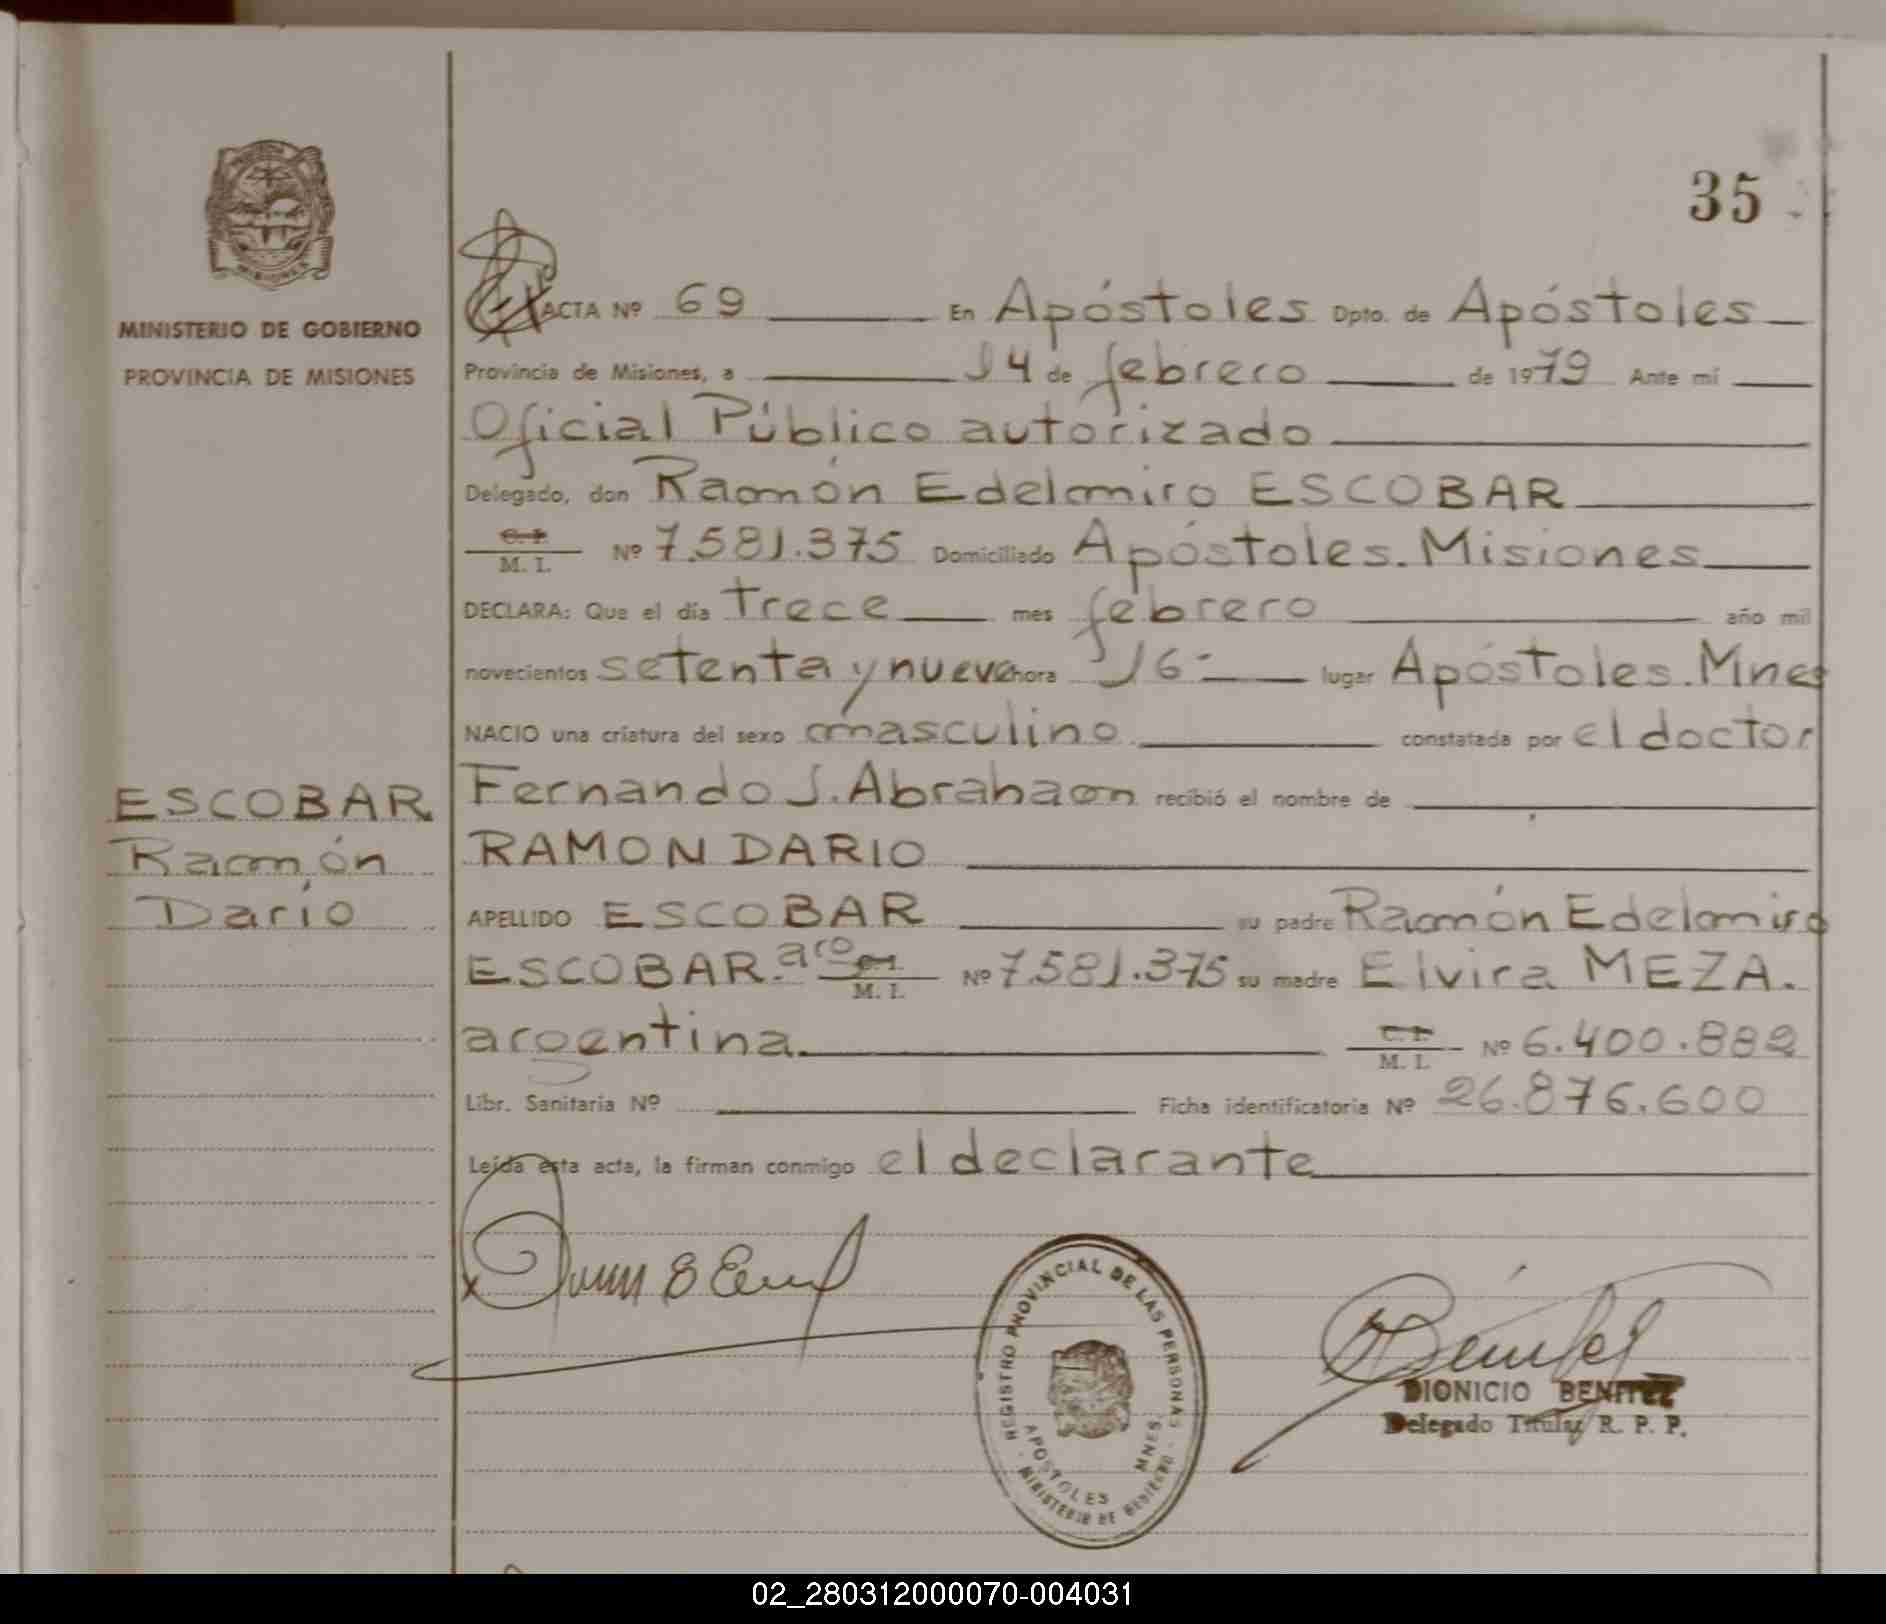 MISIONES
MINISTERIO DE GOBIERNO
PROVINCIA DE MISIONES
ESCOBAR
Ramón
Darío
35
ACTA Nº 69 En Apóstoles Dpto. de Apóstoles
Provincia de Misiones, a 14 de febrero de 1979 Ante mí
Oficial Público autorizado
Delegado, don Ramón Edelmiro ESCOBAR
C. I. / M. I. Nº 7.581.375 Domiciliado Apóstoles. Misiones
DECLARA: Que el día trece mes febrero año mil
novecientos setenta y nueve hora 16- lugar Apóstoles. Mnes
NACIO una criatura del sexo masculino constatada por el doctor
Fernando J. Abraham recibió el nombre de
RAMON DARIO
APELLIDO ESCOBAR su padre Ramón Edelmiro
ESCOBAR. aro C. I. / M. I. Nº 7.581.375 su madre Elvira MEZA.
argentina. C. I. / M. I. Nº 6.400.882
Libr. Sanitaria Nº Ficha identificatoria Nº 26.876.600
Leída esta acta, la firman conmigo el declarante
REGISTRO PROVINCIAL DE LAS PERSONAS
APOSTOLES MNES.
MINISTERIO DE GOBIERNO
Benítez
DIONICIO BENITEZ
Delegado Titular R. P. P.
02_280312000070-004031